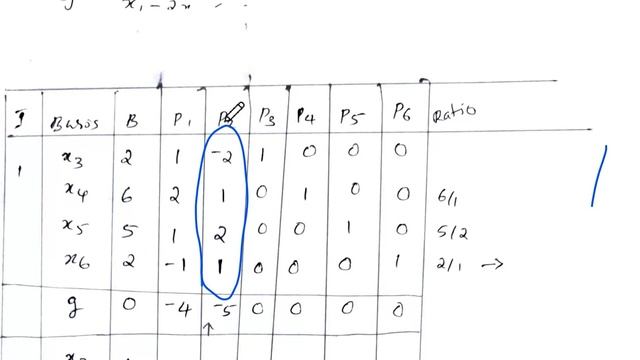 I Basis B P1 P2 P3 P4 P5 P6 Ratio
1 x3 2 1 -2 1 0 0 0
x4 6 2 1 0 1 0 0 6/1
x5 5 1 2 0 0 1 0 5/2
x6 2 -1 1 0 0 0 1 2/1 →
g 0 -4 -5 0 0 0 0